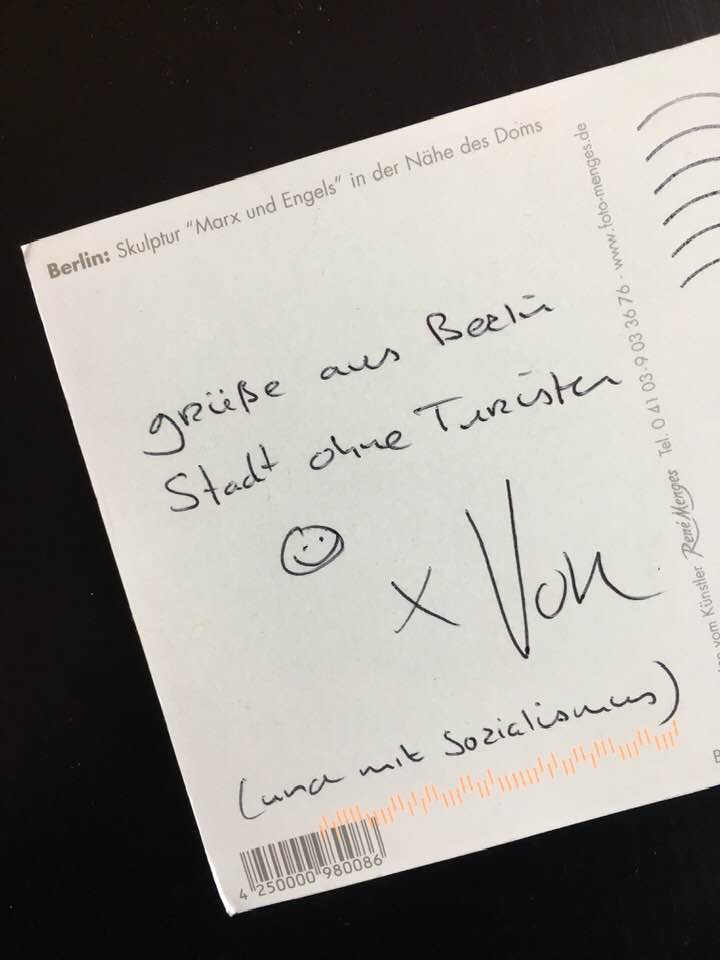 Berlin: Skulptur "Marx und Engels" in der Nähe des Doms
grüße aus Berlin
Stadt ohne Turisten
x Von
(und mit Sozialismus)
4 250000 980086
vom Künstler René Menges Tel. 0 41 03-9 03 36 76 - www.foto-menges.de
B